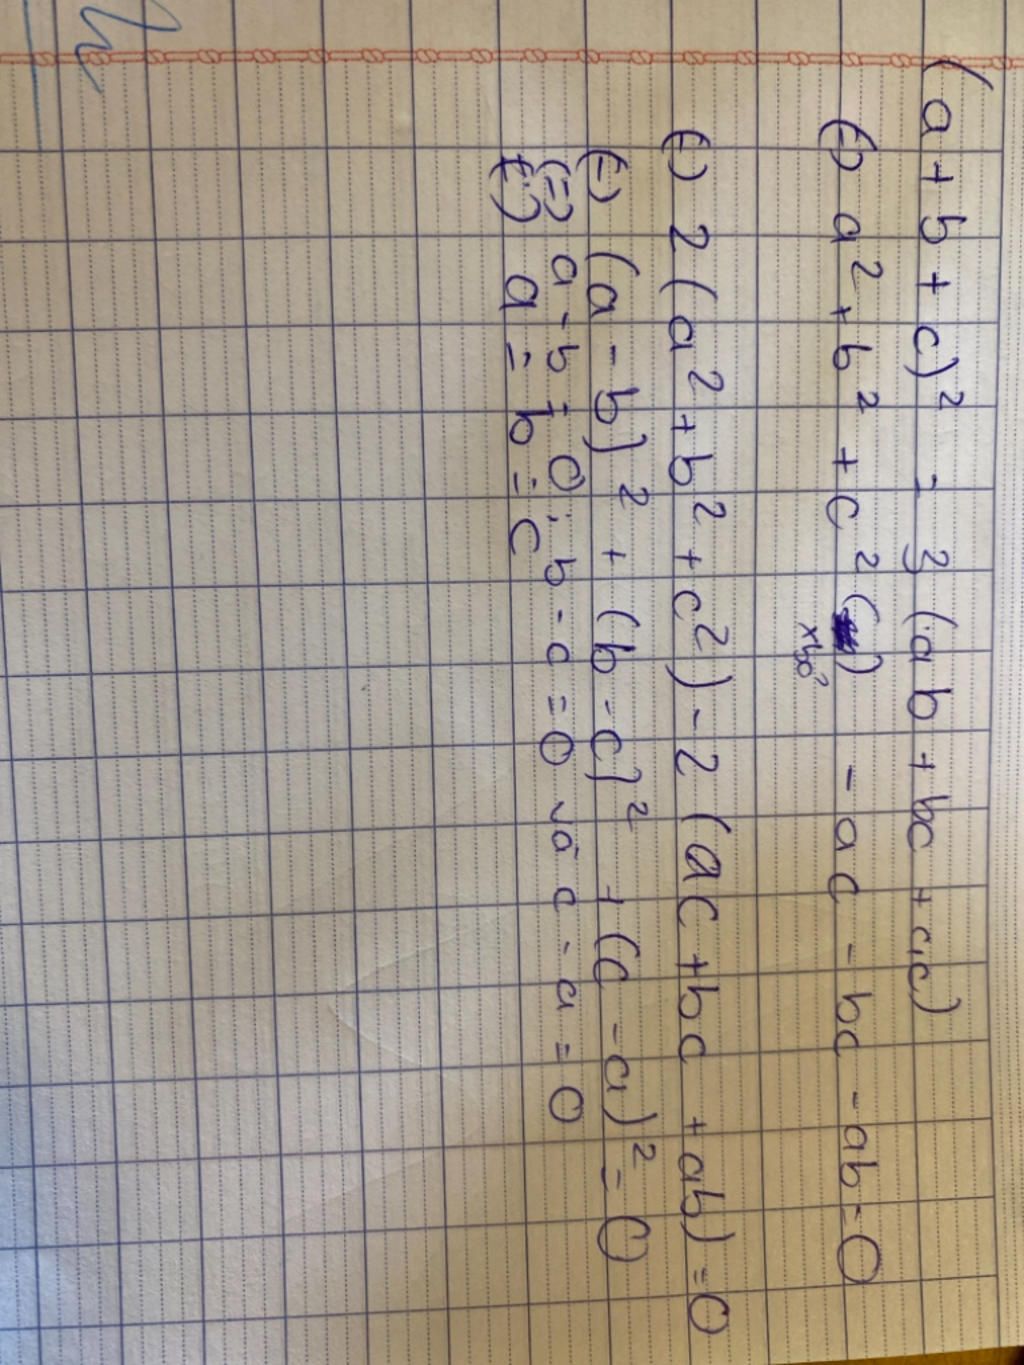 (a + b + c)² = 3 (ab + bc + ac)
(=) a² + b² + c² - ac - bc - ab = 0
(=) 2 (a² + b² + c²) - 2 (ac + bc + ab) = 0
(=) (a - b)² + (b - c)² + (c - a)² = 0
(=) a - b = 0; b - c = 0 và c - a = 0
(=) a = b = c